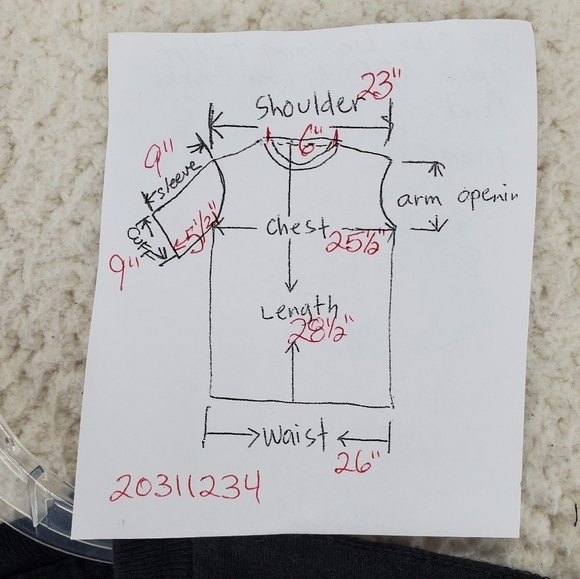 23"
Shoulder
9"
6"
sleeve
arm openin
Cuff
5½"
Chest
25½"
9"
Length
28½"
Waist
26"
20311234